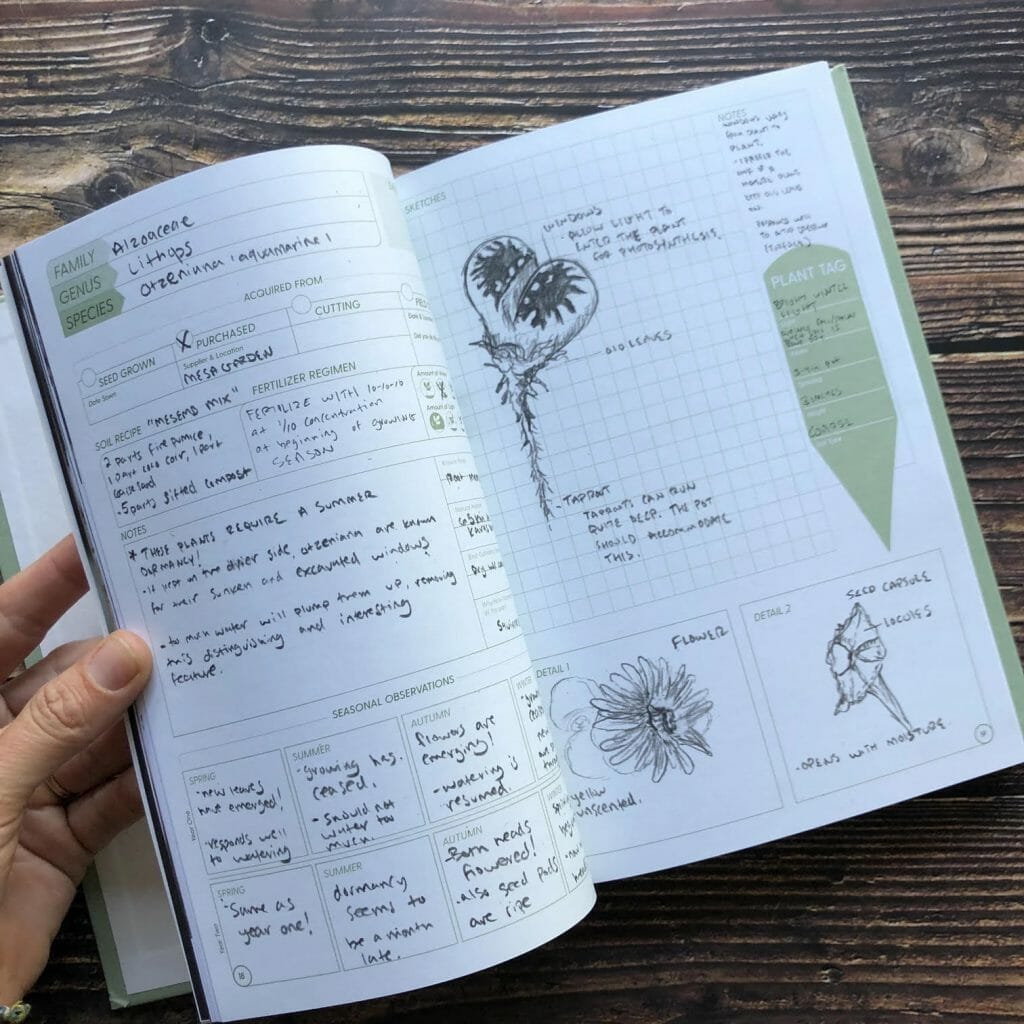 FAMILY Aizoaceae
GENUS Lithops
SPECIES otzeniana 'aquamarine'
ACQUIRED FROM
SEED GROWN
Date Sown
X PURCHASED
Supplier & Location
MESA GARDEN
CUTTING
SOIL RECIPE "MESEMB MIX"
2 parts fine pumice,
1 part coco coir, 1 part
.5 parts sifted compost
FERTILIZER REGIMEN
FERTILIZE WITH 10-10-10
at 1/10 concentration
at beginning of growing
SEASON
NOTES
* THESE PLANTS REQUIRE A SUMMER
DORMANCY!
- if kept on the drier side, otzeniana are known
for their sunken and excavated windows
- to much water will plump them up, removing
this distinguishing and interesting
feature.
SEASONAL OBSERVATIONS
Year One
SPRING
- new leaves
have emerged!
- responds well
to watering
SUMMER
- growing has
ceased.
- should not
water too
much
AUTUMN
flowers are
emerging!
- watering is
resumed.
WINTER
Year Two
SPRING
- Same as
year one!
SUMMER
dormancy
seems to
be a month
late.
AUTUMN
- Both heads
flowered!
- also seed pods
are ripe
WINTER
16
SKETCHES
WINDOWS
- ALLOW LIGHT TO
ENTER THE PLANT
FOR PHOTOSYNTHESIS.
OLD LEAVES
- TAPROOT
TAPROOTS CAN RUN
QUITE DEEP. THE POT
SHOULD ACCOMMODATE
THIS.
NOTES
WINDOWS VARY
FROM PLANT TO
PLANT.
PLANT TAG
BRIGHT WINTER
LIGHT
3 INCHES
DETAIL 1
FLOWER
yellow
unscented.
DETAIL 2
SEED CAPSULE
LOCULES
- OPENS WITH MOISTURE